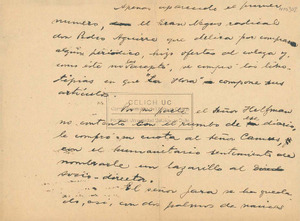 Apenas aparecido el primer
número, el Gran Negus radical
don Pedro Aguirre que delira por comprar
algún periódico, hizo ofertas al colega y,
como éste no aceptó, se compró las lino-
tipias en que "La Hora" compone sus
artículos.
Por su parte, el señor Helfman
no contento con el rumbo de su diario,
lo compró en cuota al señor
con el humanitario sentimiento de
nombrarle un lazarillo al
socio-director.
El señor Jara se ha queda-
do, así, con dos palmos de narices
CELICH UC